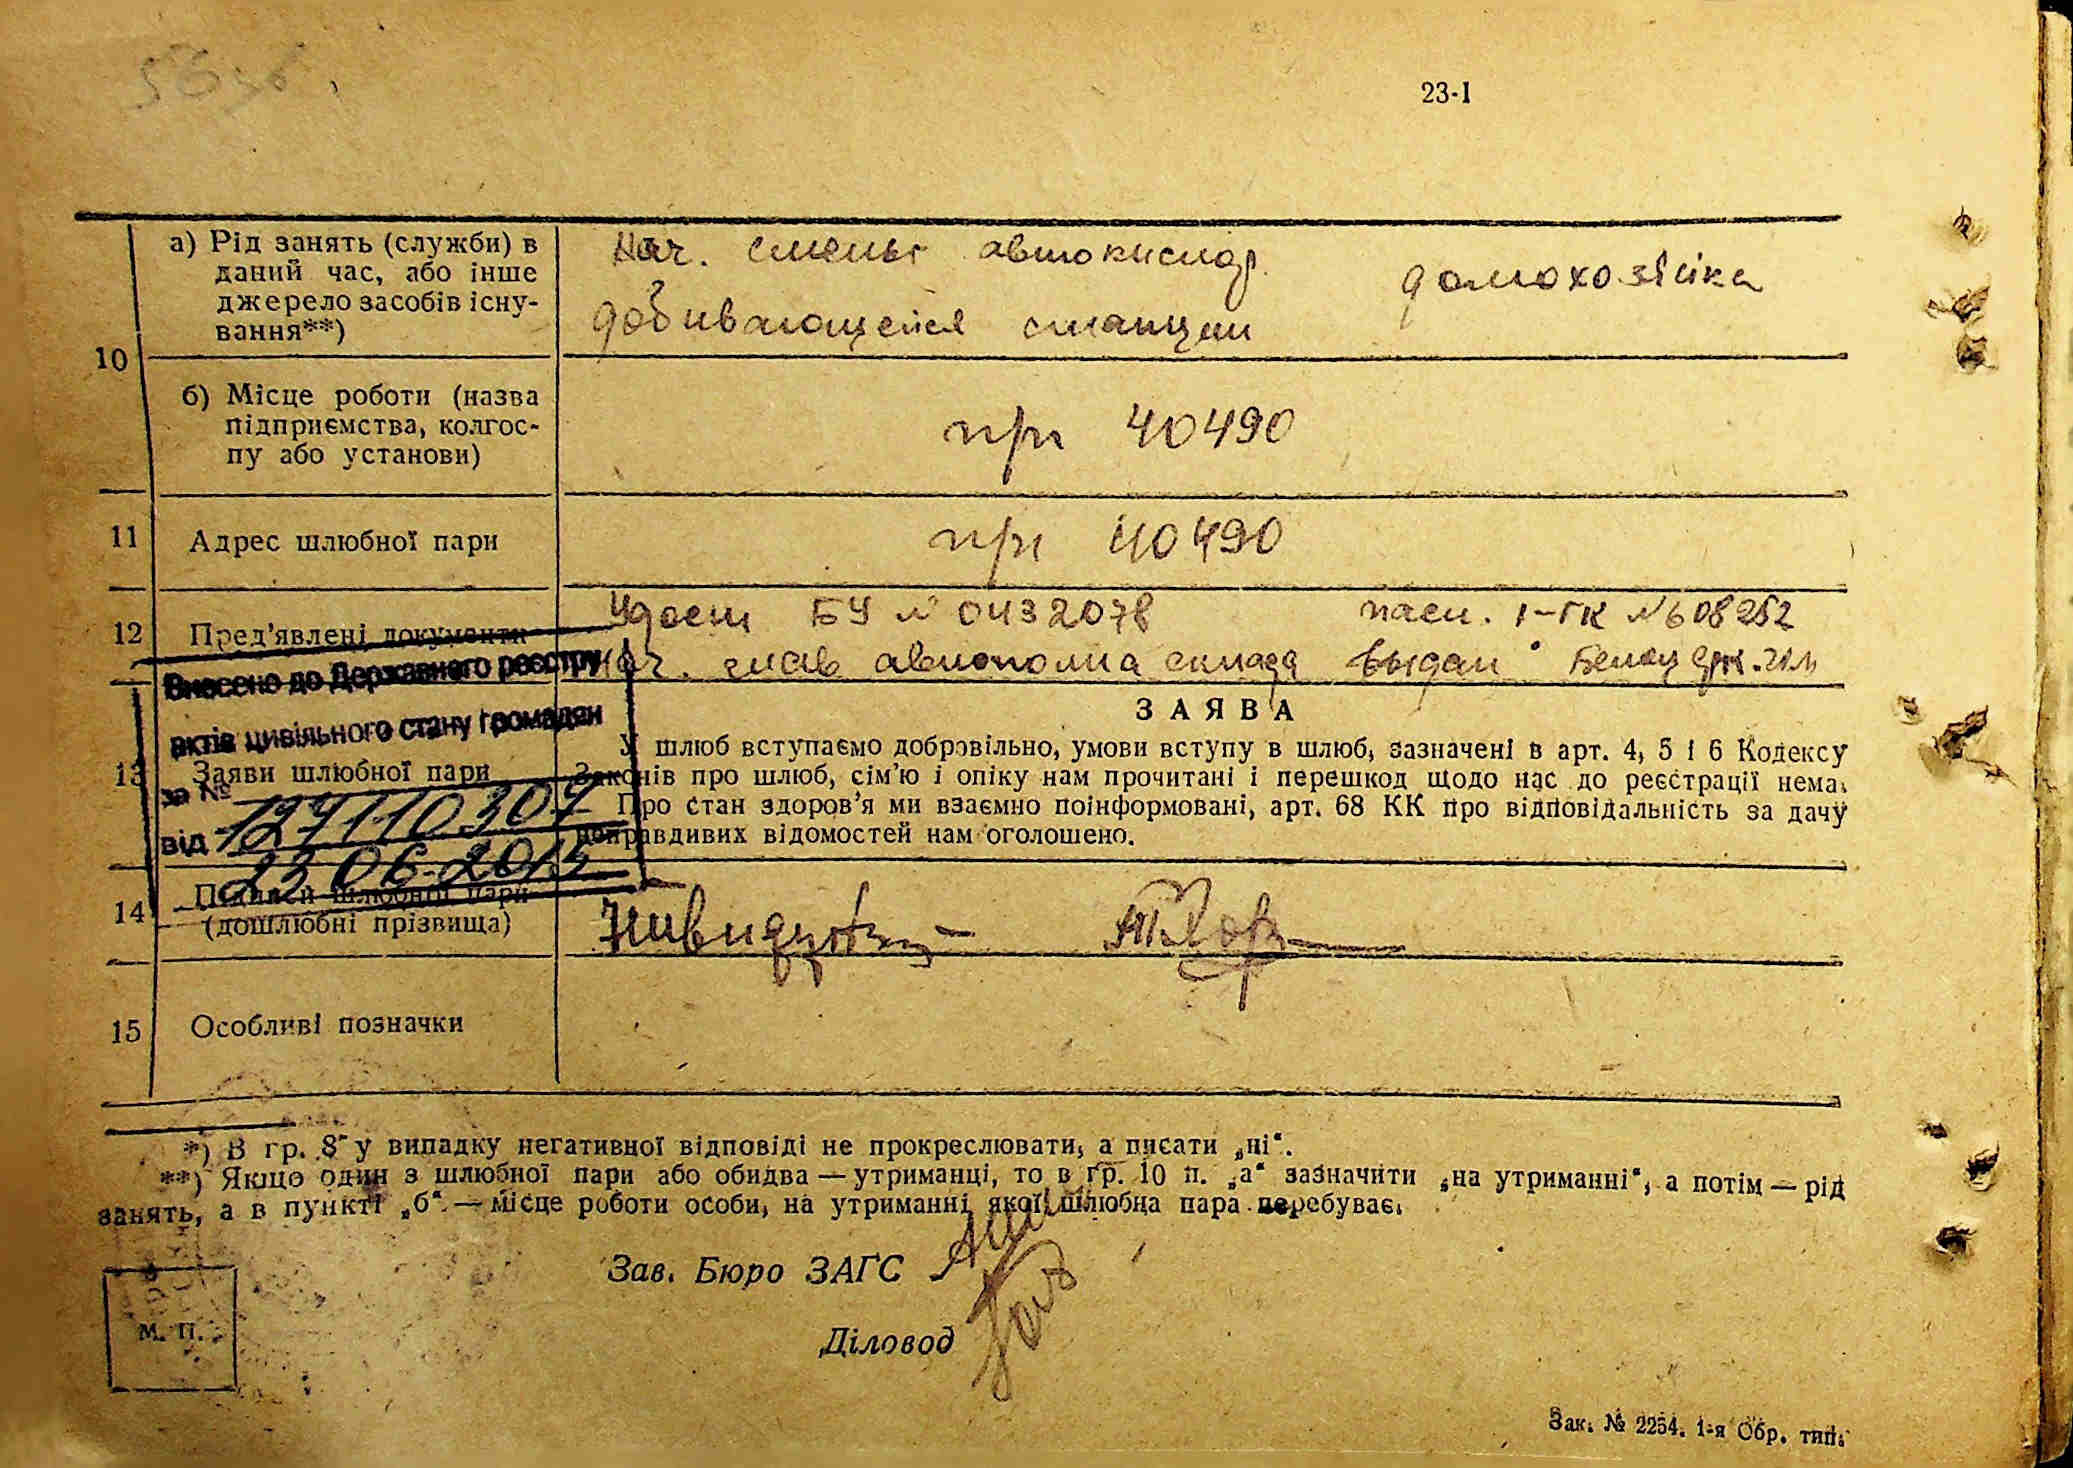 23-1
а) Рід занять (служби) в
даний час, або інше
джерело засобів існу-
вання**)
Нач. смены автокислор.
добивающейся станции
домохозяйка
10
б) Місце роботи (назва
підприємства, колгос-
пу або установи)
п/п 40490
11
Адрес шлюбної пари
п/п 40490
12
Пред'явлені документи
Удост БУ № 0432078
нач. глав автополка склада
пасп. 1-ГК №608252
выдан
Внесено до Державного реєстру
актів цивільного стану громадян
за №
від
13
Заяви шлюбної пари
ЗАЯВА
У шлюб вступаємо добровільно, умови вступу в шлюб, зазначені в арт. 4, 5 і 6 Кодексу
Законів про шлюб, сім'ю і опіку нам прочитані і перешкод щодо нас до реєстрації нема.
Про стан здоров'я ми взаємно поінформовані, арт. 68 КК про відповідальність за дачу
неправдивих відомостей нам оголошено.
14
Підписи шлюбної пари
(дошлюбні прізвища)
15
Особливі позначки
*) В гр. 8 у випадку негативної відповіді не прокреслювати, а писати „ні“.
**) Якщо один з шлюбної пари або обидва — утриманці, то в гр. 10 п. „а“ зазначити „на утриманні“, а потім — рід
занять, а в пункті „б“ — місце роботи особи, на утриманні якої шлюбна пара перебуває.
Зав. Бюро ЗАГС
Діловод
М. П.
Зак. № 2254. 1-я Обр. тип.